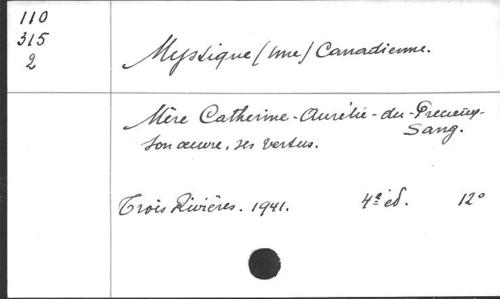 110
315
2
Mystique (une) Canadienne.
Mère Catherine-Aurélie-du-Précieux-
Sang.
Son œuvre, ses vertus.
Trois Rivières. 1941. 4e éd. 12°